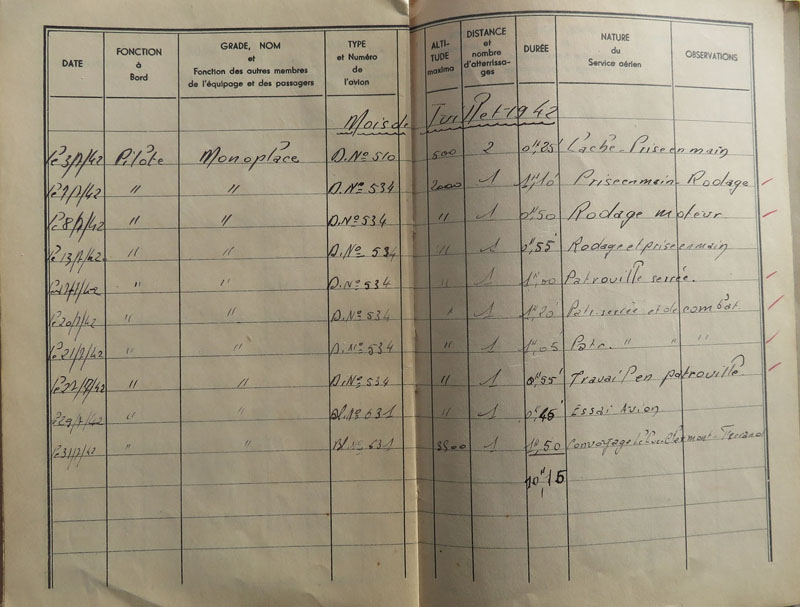 DATE
FONCTION à Bord
GRADE, NOM et Fonction des autres membres de l'équipage et des passagers
TYPE et Numéro de l'avion
ALTI- TUDE maxima
DISTANCE et nombre d'atterrissa- ges
DURÉE
NATURE du Service aérien
OBSERVATIONS
Mois de Juillet 1942
Le 3/7/42 Pilote Monoplace D. No 510 500 2 0h,25' Lâché - Prise en main
Le 7/7/42 " " D. No 534 2000 1 1h,10' Prise en main - Rodage
Le 8/7/42 " " D. No 534 " 1 0h,50 Rodage moteur
Le 13/7/42 " " D. No 534 " 1 0h,55' Rodage et prise en main
Le 17/7/42 " " D. No 534 " 1 1h,00 Patrouille serrée.
Le 20/7/42 " " D. No 534 " 1 1h,20' Patr. serrée et de combat.
Le 21/7/42 " " D. No 534 " 1 1h,05 Patr. " " "
Le 22/7/42 " " D. No 534 " 1 0h,55' Travail en patrouille.
Le 29/7/42 " " Bl. No 631 " 1 0h,45' Essai Avion
Le 31/7/42 " " Bl. No 631 3500 1 1h,50 Convoyage
10h,15